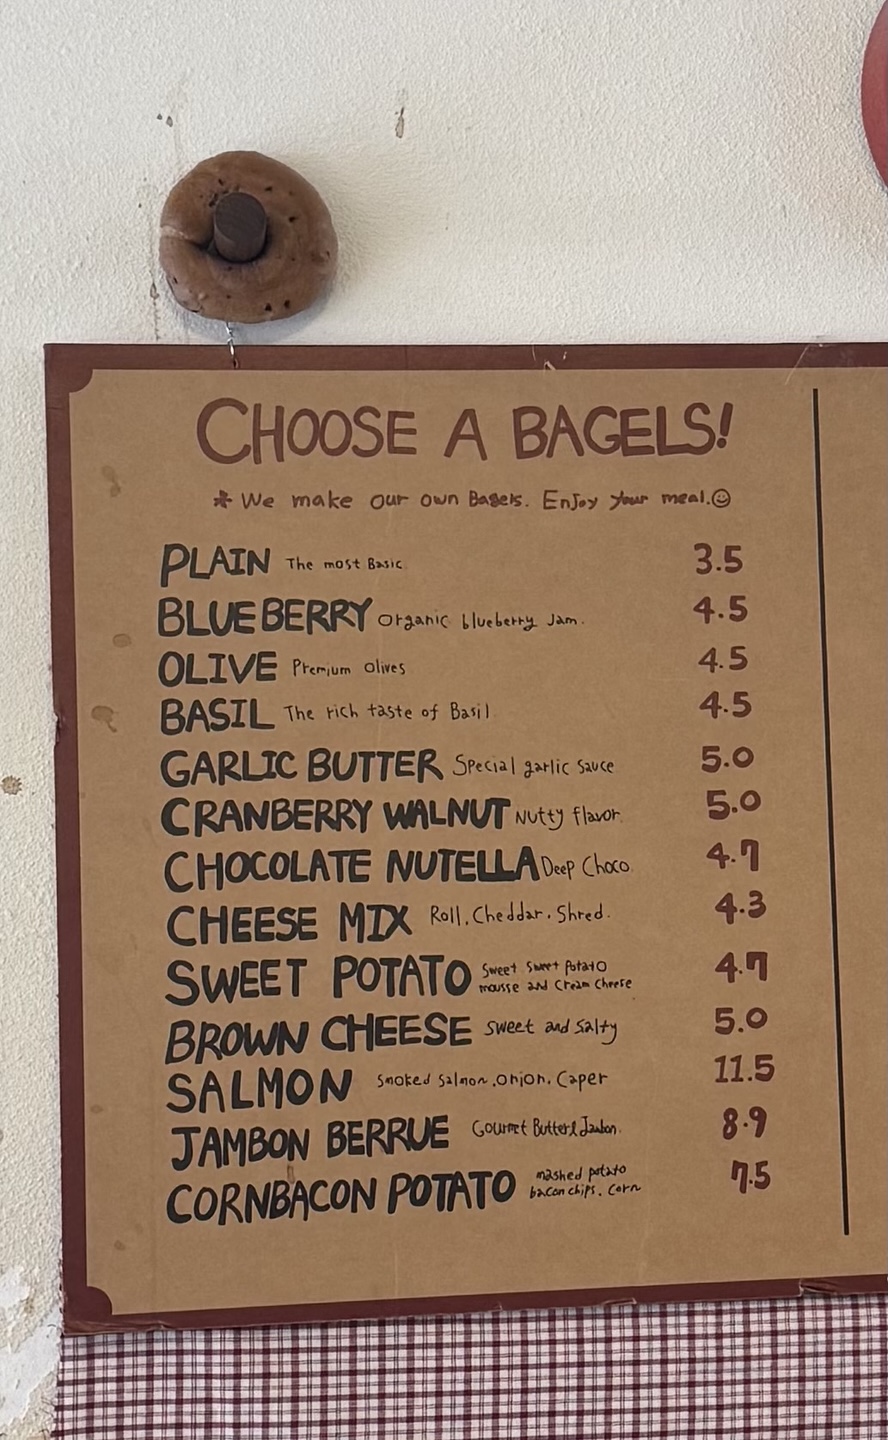 CHOOSE A BAGELS!
* We make our own Bagels. Enjoy your meal.☺
PLAIN The most Basic 3.5
BLUEBERRY Organic blueberry Jam. 4.5
OLIVE Premium Olives 4.5
BASIL The rich taste of Basil 4.5
GARLIC BUTTER Special garlic Sauce 5.0
CRANBERRY WALNUT Nutty flavor. 5.0
CHOCOLATE NUTELLA Deep Choco. 4.7
CHEESE MIX Roll, Cheddar, Shred. 4.3
SWEET POTATO Sweet Sweet Potato 4.7
mousse and Cream Cheese
BROWN CHEESE Sweet and Salty 5.0
SALMON Smoked Salmon, onion, Caper 11.5
JAMBON BERRUE Gourmet Butter & Jambon. 8.9
CORNBACON POTATO mashed potato 7.5
bacon chips. Corn